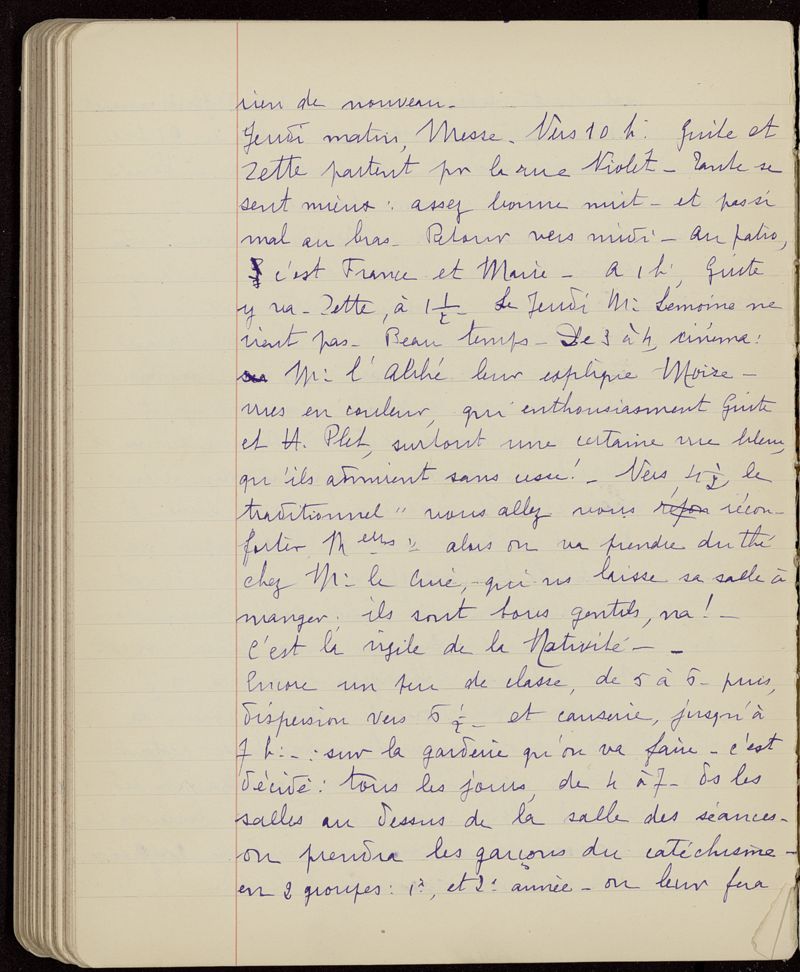 rien de nouveau.
Jeudi matin, Messe. Vers 10 h: Guite et
Zette partent pr la rue Violet - Tante se
sent mieux : assez bonne nuit - et pas si
mal au bras. Retour vers midi - au patro,
c'est France et Marie - à 1 h:, Guite
y va - Zette, à 1 1/2 - Le Jeudi Mr Lemoine ne
vient pas - Beau temps - De 3 à 4, cinéma :
Mr l'Abbé leur explique Moïse -
vues en couleur, qui enthousiasment Guite
et H. Plet, surtout une certaine vue bleue,
qu'ils admirent sans cesse ! - Vers 4 1/2, le
traditionnel " vous allez vous répon récon-
forter Melles " alors on va prendre du thé
chez Mr le Curé, qui ns laisse sa salle à
manger ; ils sont tous gentils, na ! -
C'est la vigile de la Nativité - -
Encore un peu de classe, de 5 à 6 - puis,
dispersion vers 6 1/2 - et causerie, jusqu'à
7 h: - : sur la garderie qu'on va faire - c'est
décidé : tous les jours, de 4 à 7 - ds les
salles au dessus de la salle des séances -
on prendra les garçons du catéchisme -
en 2 groupes : 1re, et 2e année - on leur fera